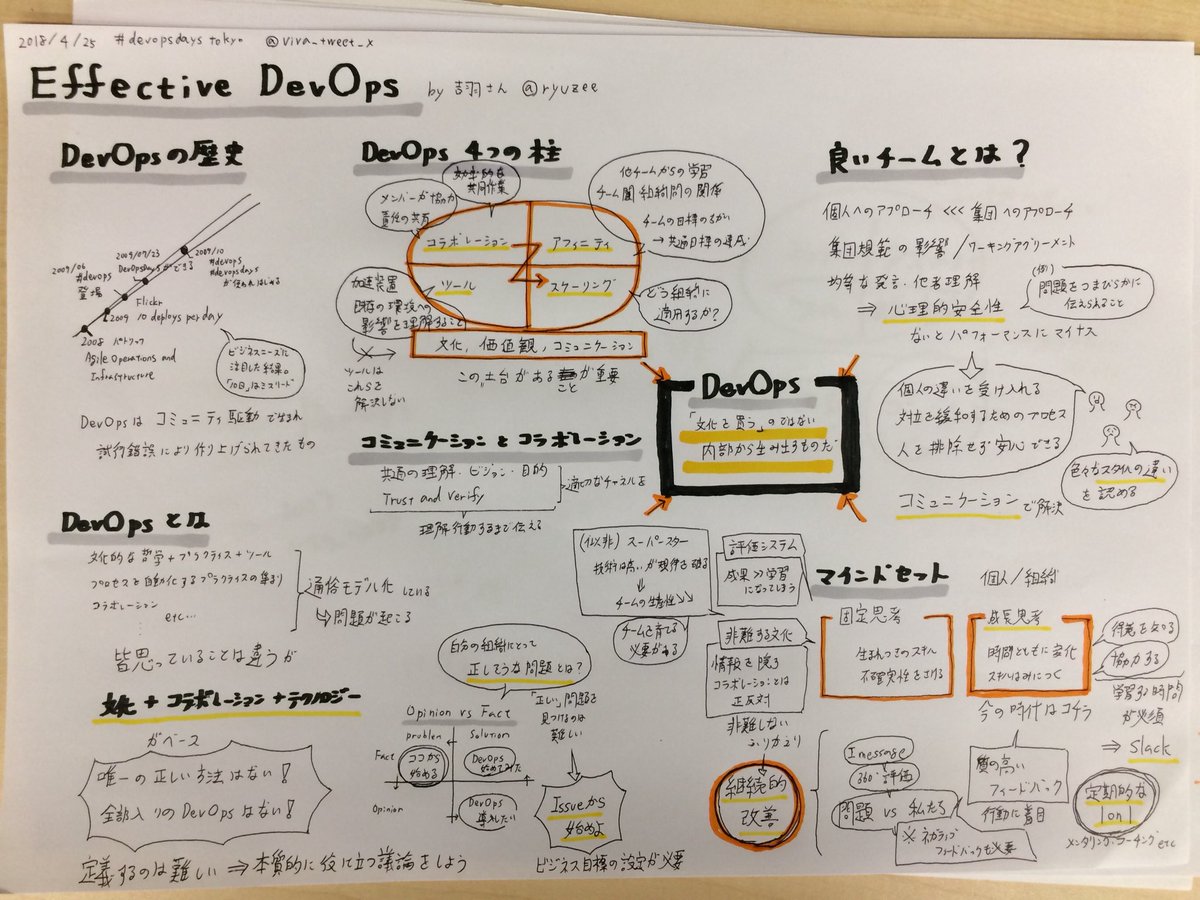 2018/4/25 #devopsdays tokyo @viva_tweet_x
Effective DevOps by 吉羽さん @ryuzee
DevOpsの歴史
2009/10
#devops
#devopsdays
が使われはじめる
2009/09/23
DevOpsDaysができる
2009/06
#devops
登場
Flickr
2009 10 deploys per day
2008 パトリック
Agile Operations and
Infrastructure
ビジネスニーズに
注目した結果。
「10回」はミスリード
DevOpsは コミュニティ駆動で生まれ
試行錯誤により作り上げられてきたもの
DevOpsとは
文化的な哲学+プラクティス+ツール
プロセスを自動化するプラクティスの集まり
コラボレーション
etc...
通俗モデル化している
問題が起こる
皆思っていることは違うが
文化+コラボレーション+テクノロジー
がベース
唯一の正しい方法はない!
全部入りのDevOpsはない!
定義するのは難しい ⇒本質的に役に立つ議論をしよう
DevOps 4つの柱
効率的な
共同作業
メンバーが協力
責任の共有
他チームからの学習
チーム間・組織間の関係
チームの目標のちがい
→共通目標の達成
コラボレーション
アフィニティ
ツール
スケーリング
加速装置
既存の環境への
影響を理解すること
どう組織に
適用するか?
文化, 価値観, コミュニケーション
ツールは
これらを
解決しない
この"土台"があることが重要
コミュニケーションとコラボレーション
共通の理解・ビジョン・目的
Trust and Verify
適切なチャネルを
理解行動するまで伝える
DevOps
「文化を買う」のではない
内部から生み出るものだ
自分の組織にとって
正してうな問題とは?
「正しい」問題を
見つけるのは
難しい
Opinion vs Fact
problem Solution
Fact
ココから
始める
DevOps
始めてみた
Opinion
DevOps
導入したい
Issueから
始めよ
ビジネス目標の設定が必要
(似非)スーパースター
技術は高いが規律を破る
チームの生産性↘↘
チームを育てる
必要がある
評価システム
成果≫学習
になってしまう
非難する文化
情報を隠す
コラボレーションとは
正反対
非難しない
ふりかえり
継続的
改善
良いチームとは?
個人へのアプローチ <<< 集団へのアプローチ
集団規範の影響/ワーキングアグリーメント
均等な発言・他者理解
⇒ 心理的安全性
(例)
問題をつまびらかに
伝えられること
ないとパフォーマンスにマイナス
個人の違いを受け入れる
対立を緩和するためのプロセス
人を排除せず安心できる
色々なスタイルの違い
を認める
コミュニケーションで解決
マインドセット 個人/組織
固定思考
生まれつきのスキル
不確実性をさける
成長思考
時間とともに変化
スキルはみにつく
今の時代はコチラ
得意を知る
協力する
学習する時間
が必須
⇒ Slack
I message
360°評価
問題 vs 私たち
※ネガティブ
フィードバックも必要
質の高い
フィードバック
行動に着目
定期的な
1on1
メンタリング・コーチングetc